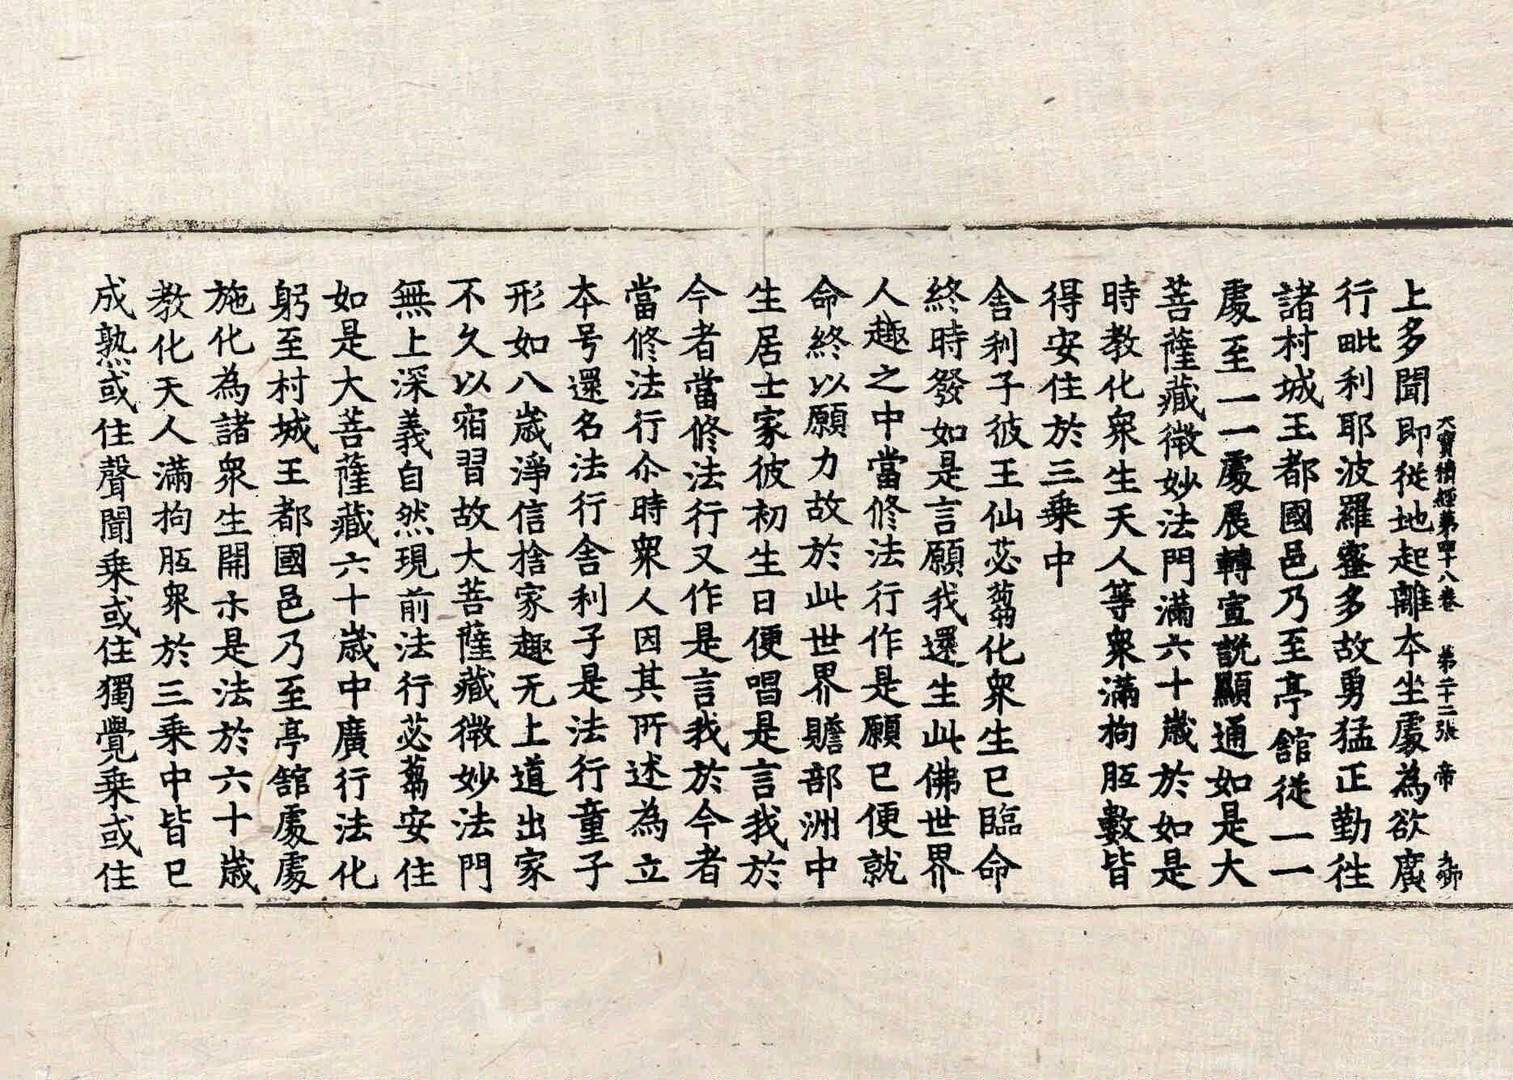 大寶積經第四十八卷　第二十二張　帝
上多聞即従地起離本坐處為欲廣
行毗利耶波羅蜜多故勇猛正勤往
諸村城王都國邑乃至亭館従一一
處至一一處展轉宣説顯通如是大
菩薩藏微妙法門滿六十歳於如是
時教化衆生天人等衆滿拘胝數皆
得安住於三乗中
舎利子彼王仙苾芻化衆生已臨命
終時發如是言願我還生此佛世界
人趣之中當修法行作是願已便就
命終以願力故於此世界贍部洲中
生居士家彼初生日便唱是言我於
今者當修法行又作是言我於今者
當修法行尒時衆人因其所述為立
本号還名法行舎利子是法行童子
形如八歳淨信捨家趣无上道出家
不久以宿習故大菩薩藏微妙法門
無上深義自然現前法行苾芻安住
如是大菩薩藏六十歳中廣行法化
躬至村城王都國邑乃至亭館處處
施化為諸衆生開示是法於六十歳
教化天人滿拘胝衆於三乗中皆已
成熟或住聲聞乗或住獨覺乗或住